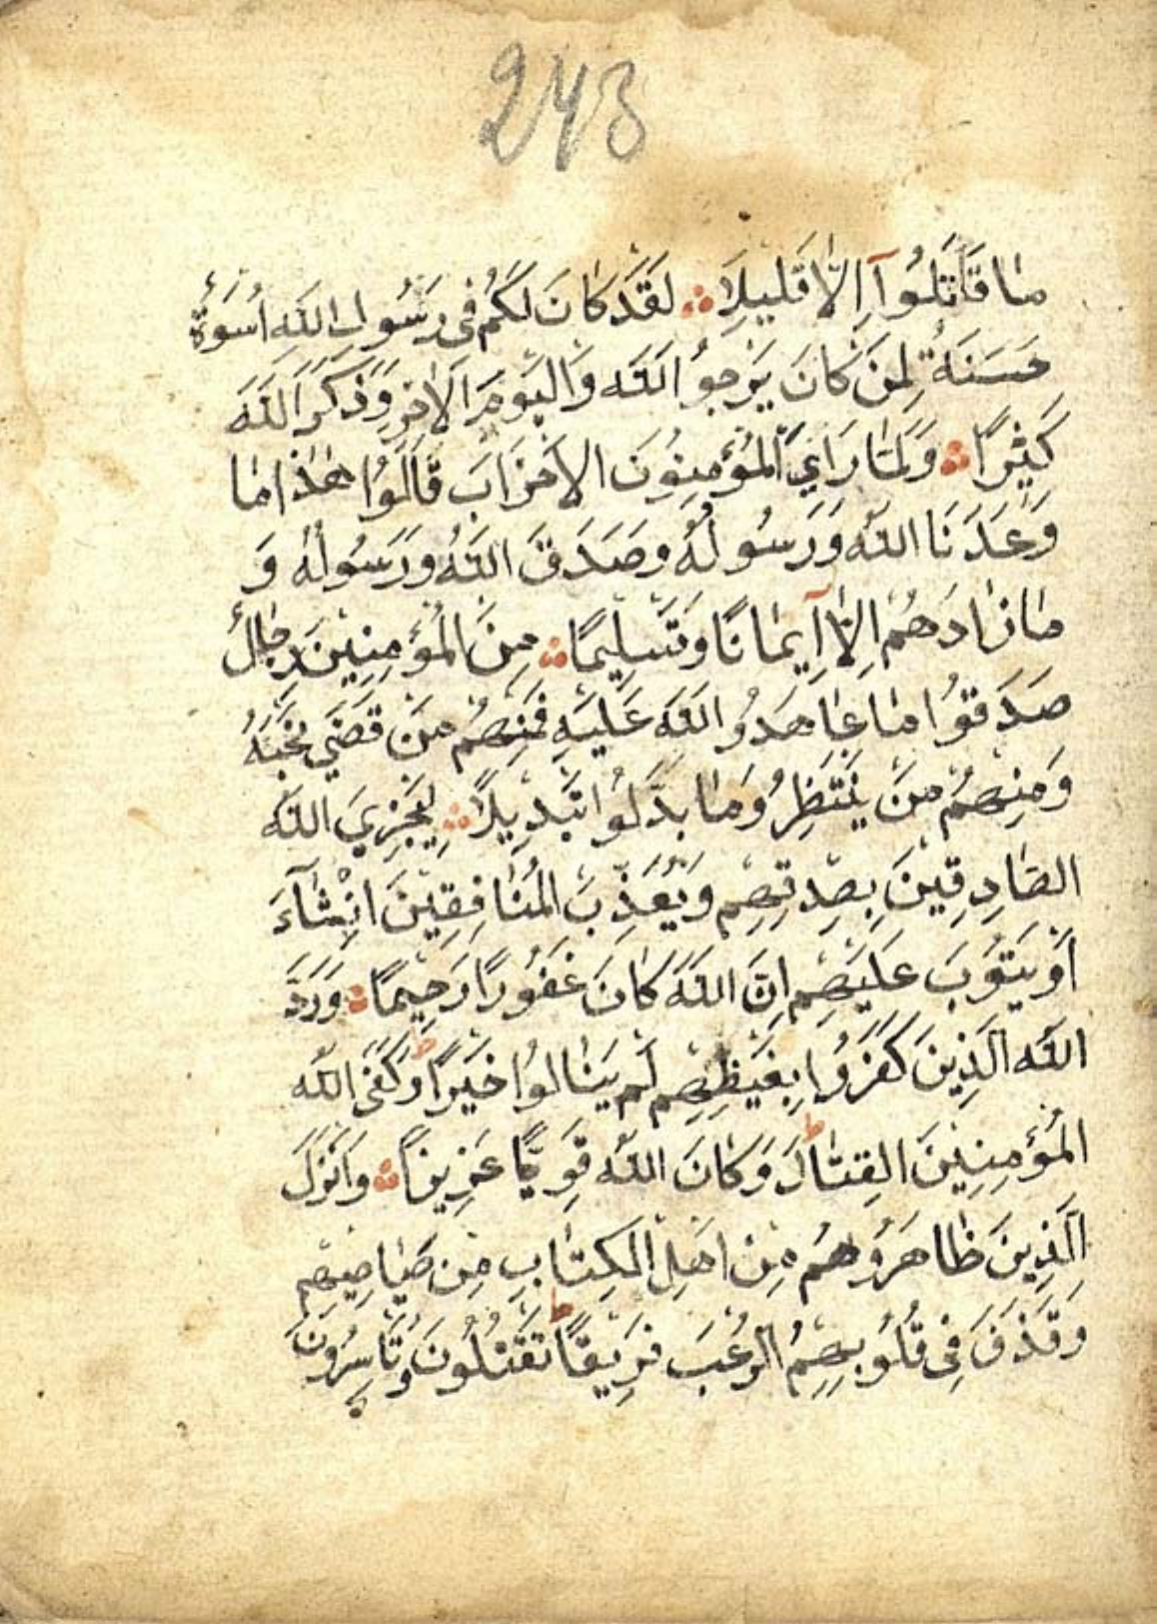 243
مَا قَاتَلُوآ اِلَّا قَلِيلًا لَقَدْ كَانَ لَكُمْ فِى رَسُولِ اللّٰهِ اُسْوَةٌ
حَسَنَةٌ لِمَنْ كَانَ يَرْجُو اللّٰهَ وَالْيَوْمَ الْاٰخِرَ وَذَكَرَ اللّٰهَ
كَثِيرًا وَلَمَّا رَاىَ الْمُؤْمِنُونَ الْاَحْزَابَ قَالُوا هٰذَا مَا
وَعَدَنَا اللّٰهُ وَرَسُولُهُ وَصَدَقَ اللّٰهُ وَرَسُولُهُ وَ
مَا زَادَهُمْ اِلَّا اِيمَانًا وَتَسْلِيمًا مِنَ الْمُؤْمِنِينَ رِجَالٌ
صَدَقُوا مَا عَاهَدُوا اللّٰهَ عَلَيْهِ فَمِنْهُمْ مَنْ قَضَى نَحْبَهُ
وَمِنْهُمْ مَنْ يَنْتَظِرُ وَمَا بَدَّلُوا تَبْدِيلًا لِيَجْزِيَ اللّٰهُ
الصَّادِقِينَ بِصِدْقِهِمْ وَيُعَذِّبَ الْمُنَافِقِينَ اِنْ شَآءَ
اَوْ يَتُوبَ عَلَيْهِمْ اِنَّ اللّٰهَ كَانَ غَفُورًا رَحِيمًا وَرَدَّ
اللّٰهُ الَّذِينَ كَفَرُوا بِغَيْظِهِمْ لَمْ يَنَالُوا خَيْرًا ط وَكَفَى اللّٰهُ
الْمُؤْمِنِينَ الْقِتَالَ ط وَكَانَ اللّٰهُ قَوِيًّا عَزِيزًا وَاَنْزَلَ
الَّذِينَ ظَاهَرُوهُمْ مِنْ اَهْلِ الْكِتَابِ مِنْ صَيَاصِيهِمْ
وَقَذَفَ فِى قُلُوبِهِمُ الرُّعْبَ فَرِيقًا ط تَقْتُلُونَ وَتَاْسِرُونَ